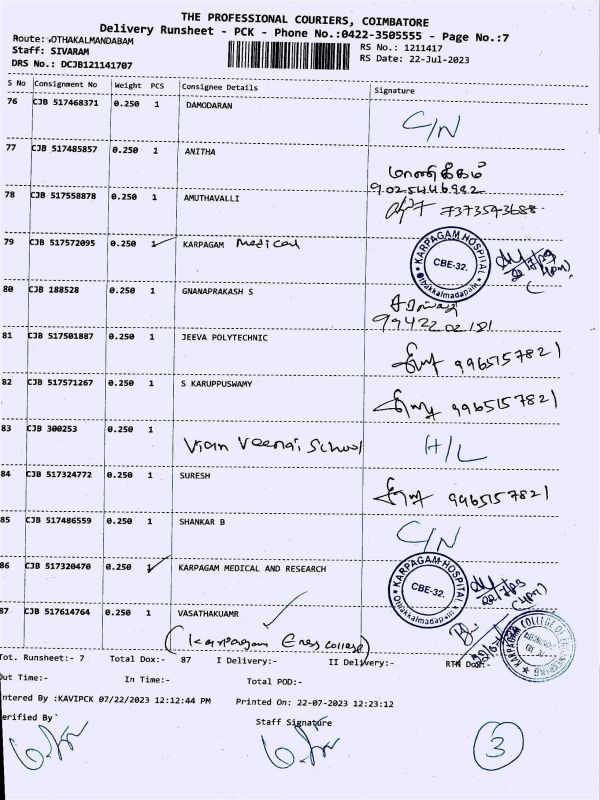 THE PROFESSIONAL COURIERS, COIMBATORE
Delivery Runsheet - PCK - Phone No.:0422-3505555 - Page No.:7
Route: OTHAKALMANDABAM
RS No.: 1211417
Staff: SIVARAM
RS Date: 22-Jul-2023
DRS No.: DCJB121141707
S No Consignment No Weight PCS Consignee Details Signature
76 CJB 517468371 0.250 1 DAMODARAN
C/N
77 CJB 517485857 0.250 1 ANITHA
மாணிக்கம்
9025446992
78 CJB 517558878 0.250 1 AMUTHAVALLI
7373543688
79 CJB 517572095 0.250 1 KARPAGAM Medical
KARPAGAM HOSPITAL
CBE-32.
Othakkalmadapam
80 CJB 188528 0.250 1 GNANAPRAKASH S
9942202181
81 CJB 517501887 0.250 1 JEEVA POLYTECHNIC
9965157821
82 CJB 517571267 0.250 1 S KARUPPUSWAMY
9965157821
83 CJB 300253 0.250 1
Veenai School H/L
84 CJB 517324772 0.250 1 SURESH
9965157821
85 CJB 517486559 0.250 1 SHANKAR B
C/N
86 CJB 517320470 0.250 1 KARPAGAM MEDICAL AND RESEARCH
KARPAGAM HOSPITAL
CBE-32.
Othakkalmadapam
87 CJB 517614764 0.250 1 VASATHAKUAMR
(Karpagam Engg College)
KARPAGAM COLLEGE OF ENGINEERING
Tot. Runsheet:- 7 Total Dox:- 87 I Delivery:- II Delivery:- RTN Dox:-
Out Time:- In Time:- Total POD:-
ntered By :KAVIPCK 07/22/2023 12:12:44 PM Printed On: 22-07-2023 12:23:12
erified By Staff Signature
3